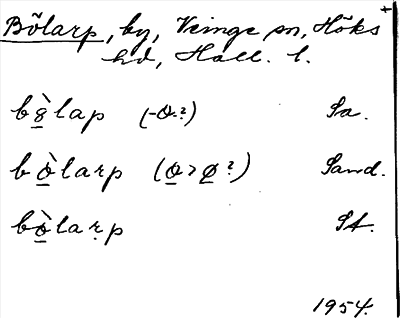 Bölarp, by, Veinge sn, Höks
hd, Hall. l.
bò̲lap (-o̲-?) Sa.
bò̲larp (o̲ > ø̲ ?) Sand.
bò̲laṛp St.
1954.